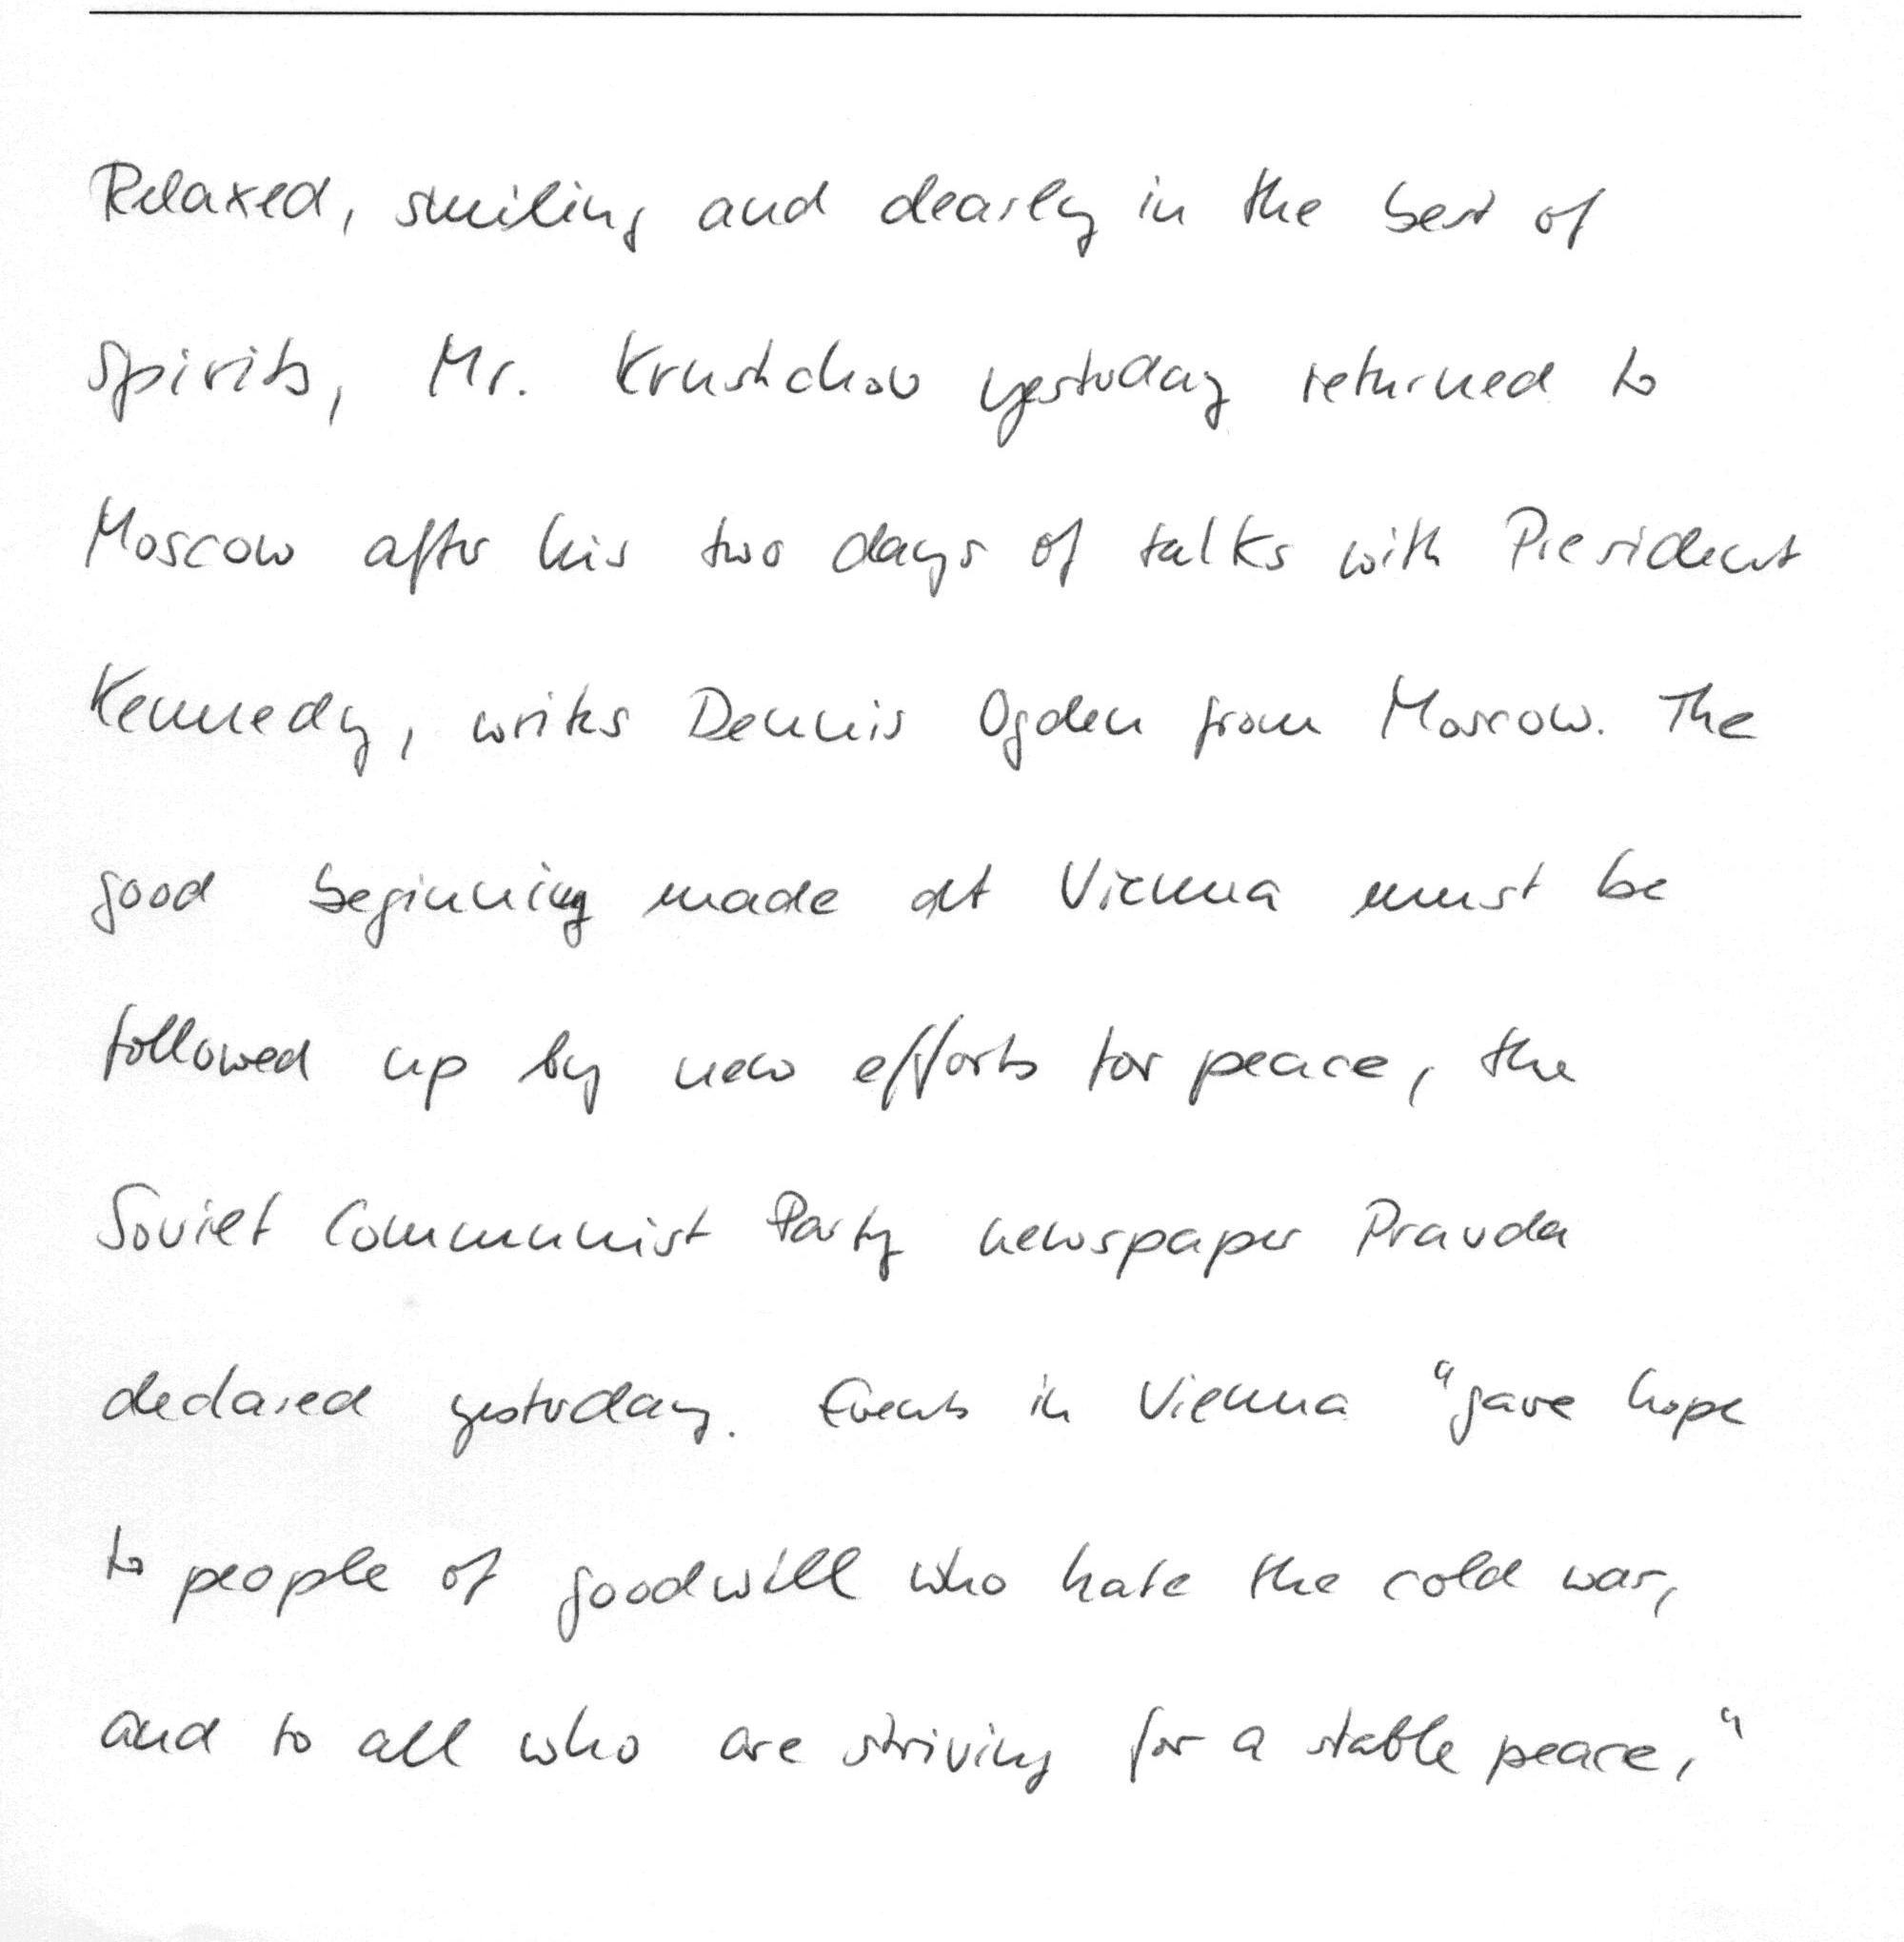 Relaxed, smiling and clearly in the best of
spirits, Mr. Krushchov yesterday returned to
Moscow after his two days of talks with President
Kennedy, writes Dennis Ogden from Moscow. The
good beginning made at Vienna must be
followed up by new efforts for peace, the
Soviet Communist Party newspaper Pravda
declared yesterday. Events in Vienna "gave hope
to people of goodwill who hate the cold war,
and to all who are striving for a stable peace,"